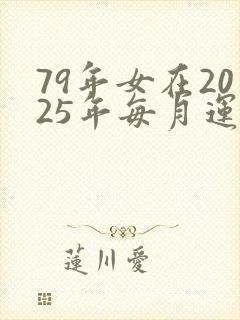 79年女在20
25年每月運
蓮川愛